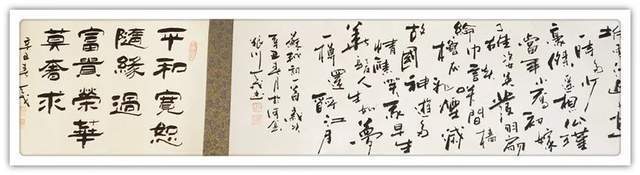 一時多少
豪傑遥想公瑾
當年小喬初嫁
了雄姿英發羽扇
綸巾談笑間檣
櫓灰飛煙滅
故國神遊多
情應笑我早生
華髮人生如夢
一樽還酹江月
蘇軾
辛丑
銀川
平和寬恕
隨緣過
富貴榮華
莫奢求
辛丑